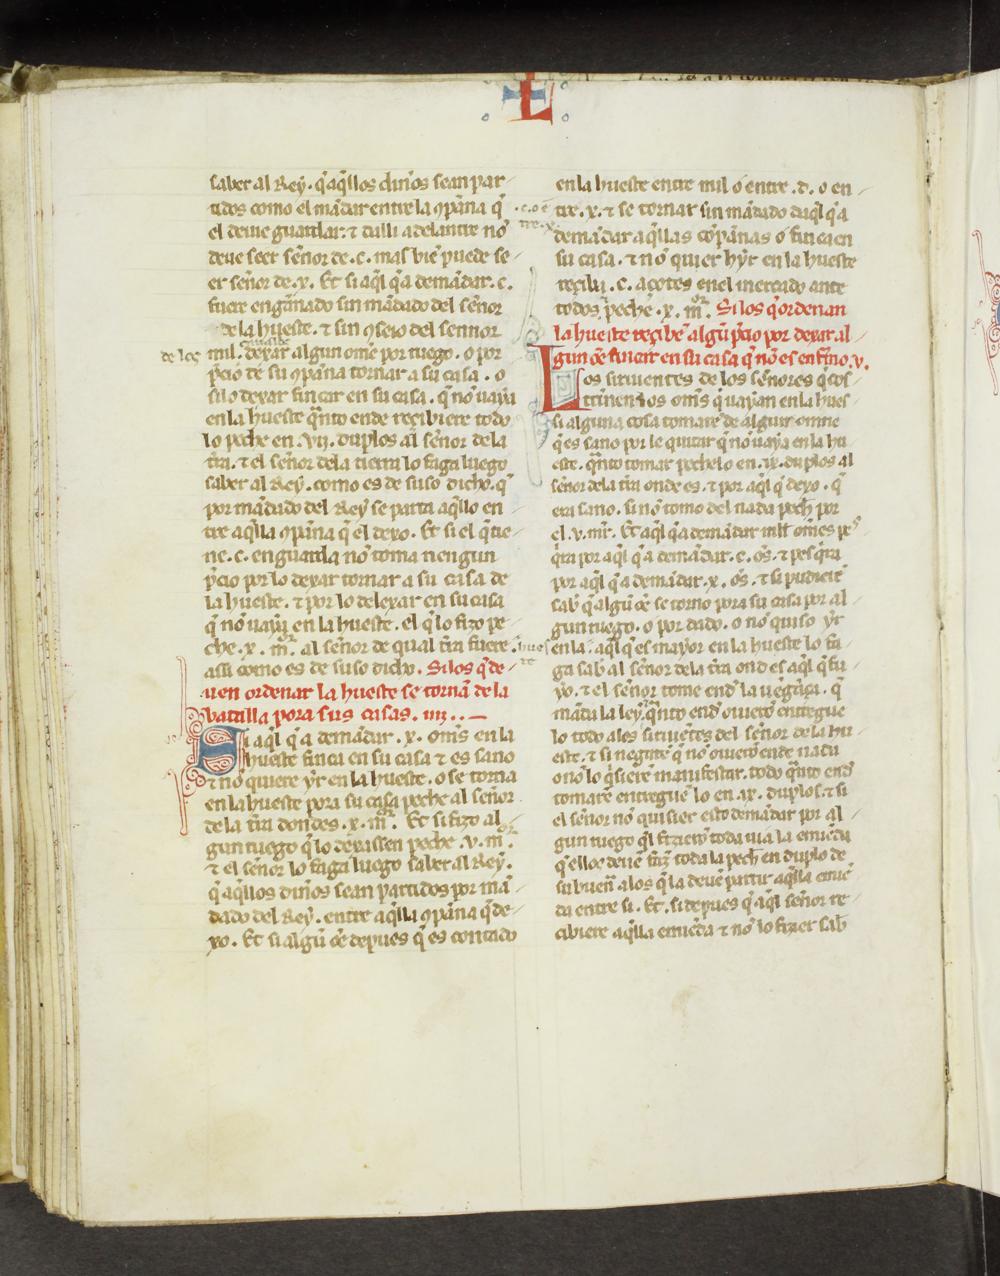 L
saber al Rey. q̃ aq̃llos dineros sean par
tidos como el mãdar entre la ↄpãna q̃
el deuie guardar. ⁊ dalli adelantre no
deue seer señor de .c. mas biẽ puede se
er señor de .x. Et si aq̃l q̃ a demãdar .c.
fuere engãnado sin mãdado del señor
de la hueste. ⁊ sin ↄseio del sennor
de los mil. dexar algun omẽ por ruego. o por
p̃cio de su ↄpãna tornar a su casa. o
si lo dexar fincar en su casa. q̃ no uaya
en la hueste q̃nto ende reçibiere todo
lo peche en .vii. duplos al señor de la
tr̃a. ⁊ el señor de la tierra lo faga luego
saber al Rey. como es de suso dicho. q̃
por mãdado del Rey se parta aq̃llo en
tre aq̃lla ↄpãna q̃ el dexo. Et si el q̃ tie
ne .c. en guarda no toma nengun
p̃cio por lo dexar tornar a su casa de
la hueste. ⁊ por lo delexar en su casa
q̃ no uaya en la hueste. el q̃ lo fizo pe
che .x. mr̃. al señor de qual tr̃a fuere.
assi como es de suso dicho. Si los q̃ de
uen ordenar la hueste se tornã de la
batalla pora sus casas. iiij..
Si aq̃l q̃ a demãdar .x. om̃s en la
hueste finca en su casa ⁊ es sano
⁊ no quiere yr en la hueste. o se torna
en la hueste pora su casa peche al señor
de la tr̃a dond es .x. mr̃. Et si fizo al
gun ruego q̃ lo dexassen peche .v. mr̃.
⁊ el señor lo faga luego saber al Rey.
q̃ aq̃llos dineros sean partidos por mã
dado del Rey. entre aq̃lla ↄpãna q̃ de
xo. Et si algũ oẽ depues q̃ es contado
en la hueste entre mil o entre .d. o en
.c. o ẽ
tre .x.
tre .x. ⁊ se tornar sin mãdado daq̃l q̃ a
demãdar aq̃llas cõpãnas o finca en
su casa. ⁊ no quier hyr en la hueste
reçiba .c. açotes en el mercado ante
todos. ⁊ peche .x. mr̃. Si los q̃ ordenan
la hueste reçibẽ algũ p̃cio por dexar al
gun oẽ fincar en su casa q̃ no es enf̃mo. v.
Los siruientes de los señores q̃ cos
trinen a los om̃s q̃ uayan en la hues
hueste
si alguna cosa tomarẽ de algun omne
q̃ es sano por le quitar q̃ no uaya en la hu
este. q̃nto tomar pechelo en .ix. duplos al
señor de la tr̃a onde es. ⁊ por aq̃l q̃ dexo. q̃
era sano. si no tomo del nada pech̃ por
el .v. mr̃. Et aq̃l q̃ a demãdar mill omẽs pes
q̃ra por aq̃l q̃ a demãdar .c. oẽs. ⁊ pesq̃ra
por aq̃l q̃ a demãdar .x. oẽs. ⁊ si pudierẽ
sab̃ q̃ algũ oẽ se torno pora su casa por al
gun ruego. o por dado. o no quiso yr
en la. aq̃l q̃ es mayor en la hueste lo fa
ga sab̃ al señor de la tr̃a ond es aq̃l q̃ fu
yo. ⁊ el señor tome end̃ la uegãça. q̃
mãda la ley. q̃nto end̃ ouierõ entregue
lo todo a los siruiẽtes del señor de la hu
este. ⁊ si negarẽ q̃ no ouierõ ende nada
o no lo q̃sierẽ manifestar. todo q̃nto end̃
tomarẽ entreguẽ lo en .ix. duplos. ⁊ si
el señor no quisier esto demãdar por al
gun ruego q̃l fizierõ toda uia la emiẽda
q̃ ellos deuẽ faz̃ toda la pech̃ en duplo de
su buena a los q̃ la deuẽ partir aq̃lla emiẽ
da entre si. Et. si depues q̃ aq̃l señor re
cibiere aq̃lla emiẽda ⁊ no lo fizier sab̃